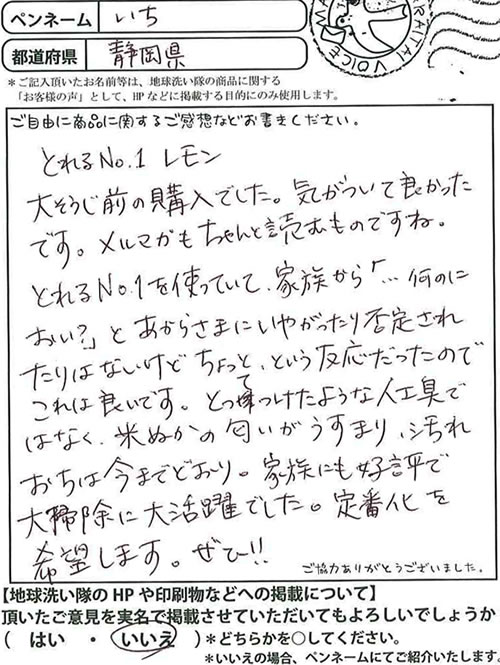 ペンネーム いち
都道府県 静岡県
＊ご記入頂いたお名前等は、地球洗い隊の商品に関する
「お客様の声」として、HPなどに掲載する目的にのみ使用します。
ご自由に商品に関するご感想などお書きください。
とれるNo.1 レモン
大そうじ前の購入でした。気がついて良かった
です。メルマガもちゃんと読むものですね。
とれるNo.1を使っていて、家族から「… 何のに
おい?」と あからさまにいやがったり否定され
たりはないけど ちょっと、という反応だったので
これは良いです。とって つけたような人工臭で
はなく、米ぬかの匂いがうすまり、汚れ
おちは今までどおり。家族にも好評で
大掃除に大活躍でした。定番化を
希望します。ぜひ!!
ご協力ありがとうございました。
【地球洗い隊のHPや印刷物などへの掲載について】
頂いたご意見を実名で掲載させていただいてもよろしいでしょうか
（ はい ・ いいえ ）＊どちらかを○してください。
＊いいえの場合、ペンネームにてご紹介いたします。